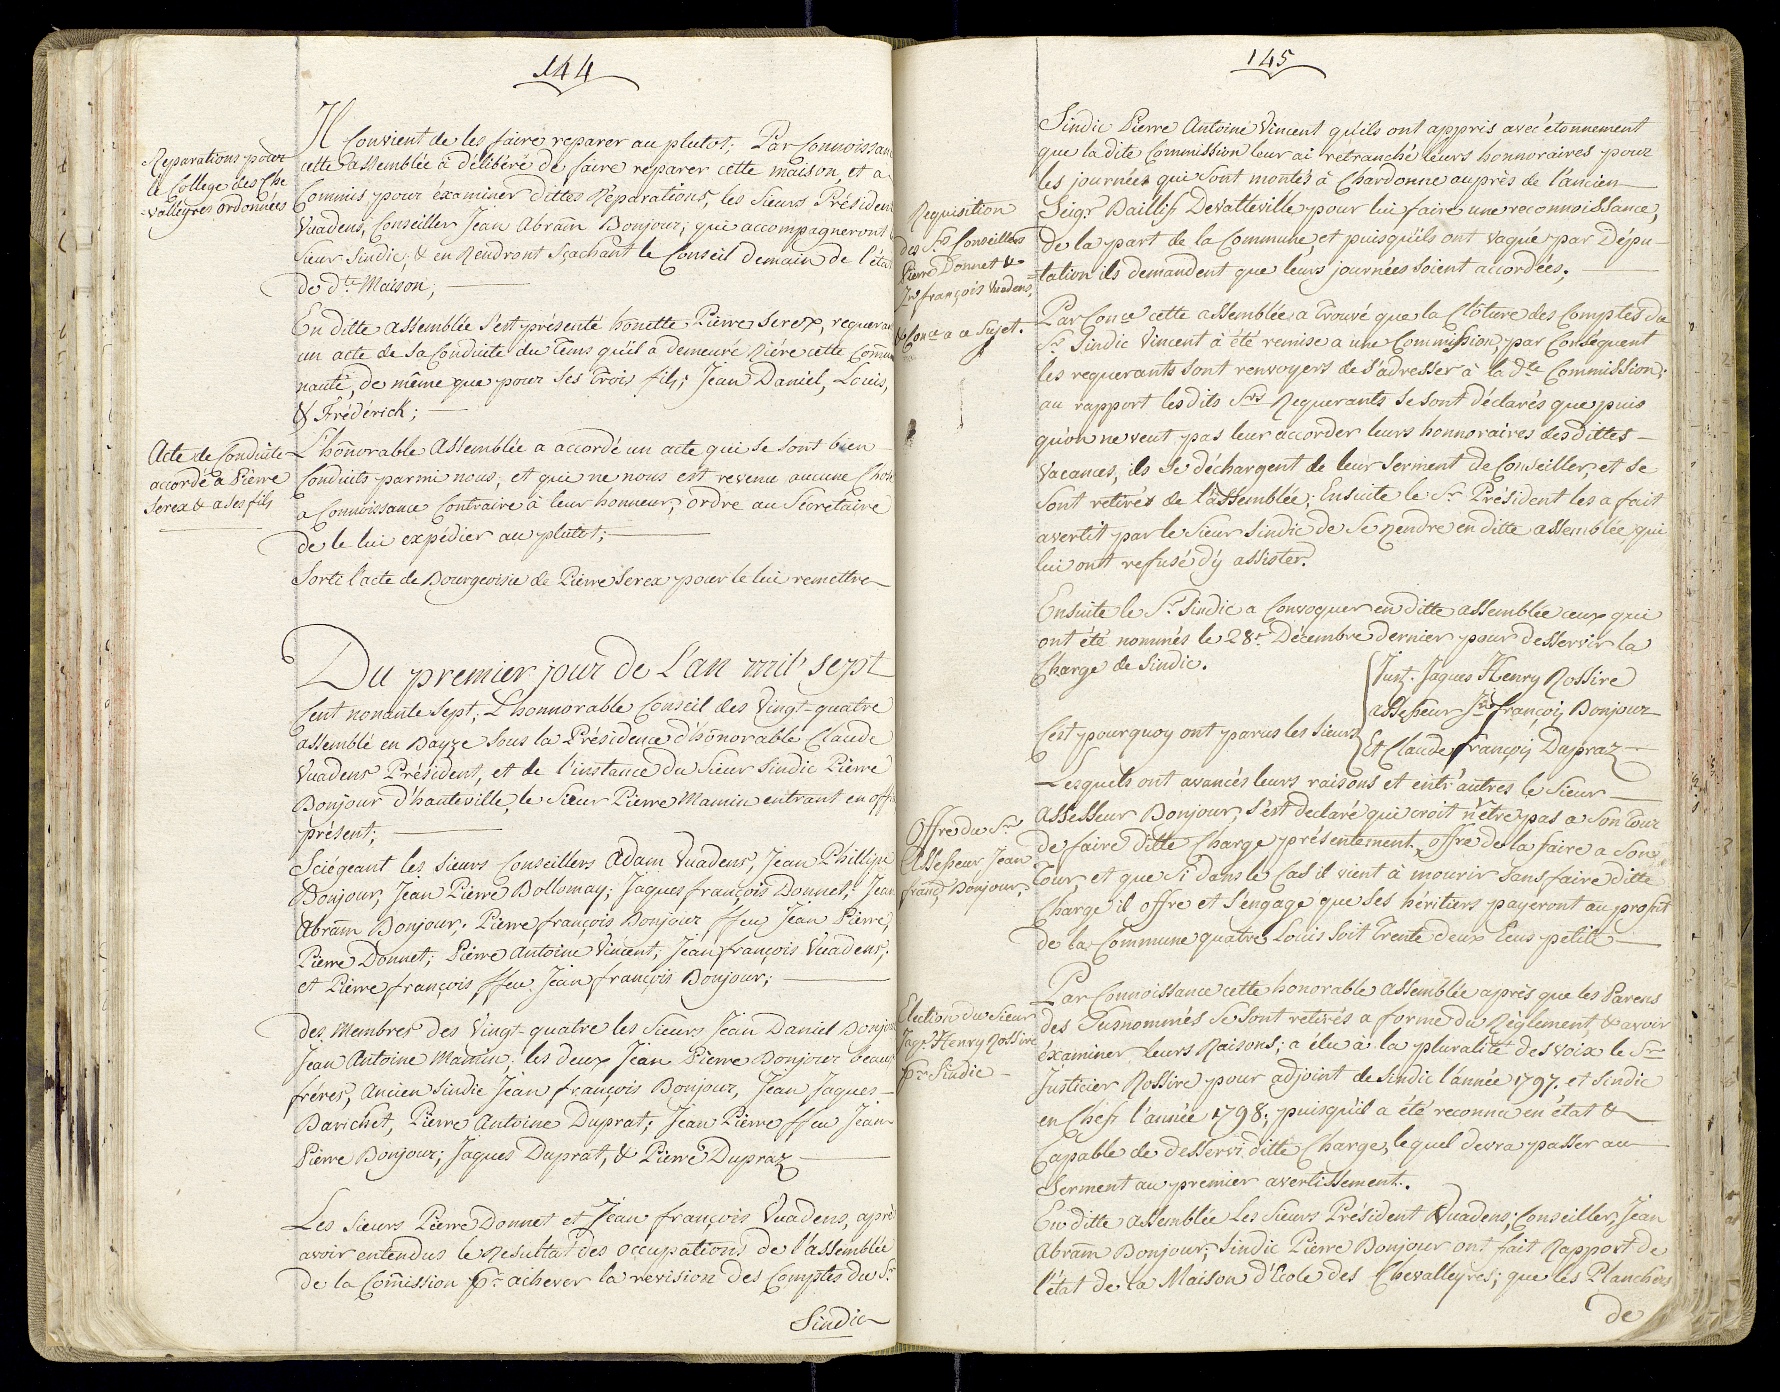 144
Il convient de les faire reparer au plutot; Par Connoissan
cette assemblée à délibéré de faire reparer cette maison, et a
Commis pour éxaminer dittes Reparations, les Sieurs Présiden
Vuadens, Conseiller Jean Abram̃ Bonjour; qui accompagneront
Sieur Sindic; & en Rendront Sçachant le Conseil demain de l'éta
de dte Maison;
Reparations pour
le College des Che
-vallegres ordonnées
En ditte assemblée s'est présenté honette Pierre Serex, requeran
un acte de sa Conduite du Tems qu'il a demeuré Riére cette Com̃u
nauté, de même que pour ses Trois fils; Jean Daniel, Louis,
& Frédérick;
Acte de Conduite
accordé à Pierre
Serex & a ses fils
L'hoñorable Assemblée a accordé un acte qui se sont bien
Conduits parmi nous, et qui ne nous est revenu aucune Chose
a Connoissance Contraire à leur honneur, ordre au Secretaire
de le lui expédier au plutot;
Sorti l'acte de Bourgeoisie de Pierre Serex pour le lui remettre
Du premier jour de L'an mil sept
Cent nonante sept; L'honnorable Conseil des Vingt-quatre
assemblé en Bayze Sous la Présidence d'hoñorable Claude
Vuadens Président, et de l'instance du Sieur Sindic Pierre
Bonjour d'hauteville, le Sieur Pierre Mamin entrant en offi
présent;
Sciégeant les Sieurs Conseillers Adam Vuadens, Jean Phillipe
Bonjour, Jean Pierre Bollomay; Jaques françois Donnet; Jean
Abram̃ Bonjour. Pierre françois Bonjour ffeu Jean Pierre,
Pierre Donnet; Pierre Antoine Vincent; Jean françois Vuadens;
et Pierre françois ffeu Jean françois Bonjour;
des Membres des Vingt-quatre les Sieurs Jean Daniel Bonjou
Jean Antoine Mamin; les deux Jean Pierre Bonjour beaux
fréres, Ancien Sindic Jean françois Bonjour, Jean Jaques
Barichet, Pierre Antoine Duprat; Jean Pierre ffeu Jean
Pierre Bonjour; Jaques Duprat, & Pierre Dupraz
Les Sieurs Pierre Donnet et Jean françois Vuadens, après
avoir entendus le Resultat des occupations de l'assemblée
de la Com̃ission pr achever la revision des Comptes du Sr
Sindic
145
Sindic Pierre Antoine Vincent qu'ils ont appris avec étonnement
que la dite Commission leur ai retranché leurs honnoraires pour
les journées qui sont montés à Chardonne auprès de l'ancien
Seigr Baillif DeVatteville pour lui faire une reconnoissance,
de la part de la Commune, et puisqu'ils ont vaqué par Dépu-
tation ils demandent que leurs journées soient accordées.
Requisition
des Srs Conseillers
Pierre Donnet &
Jn françois Vuadens,
& Conce a ce Sujet.
Par Conce cette assemblée a Trouvé que la Clôture des Comptes du
Sr Sindic Vincent à été remise a une Commission, par Conséquent
les requerants sont renvoyers de s'adresser à la dte Commission;
au rapport lesdits Srs Requerants se sont déclarés que puis
qu'on ne veut pas leur accorder leurs honnoraires desdittes
Vacances, ils se déchargent de leur Serment de Conseiller, et se
sont retirés de l'assemblée; Ensuite le Sr Président les a fait
avertit par le Sieur Sindic de se Rendre en ditte assemblée, qui
lui ont refusé d'y assister.
Ensuite le Sr Sindic a Convoquer en ditte assemblée ceux qui
ont été nommés le 28e Décembre dernier pour desservir la
Charge de Sindic.
C'est pourquoy ont parus les Sieurs
Just. Jaques Henry Rossire
assesseur Jn françois Bonjour
Et Claude françois Dapraz
Lesquels ont avancés leurs raisons et entr'autres le Sieur
Assesseur Bonjour, s'est declaré qui croit n'être pas a son Tour
de faire ditte Charge présentement, offre de la faire a son
Tour, et que si dans le Cas il vient à mourir sans faire ditte
Charge il offre et s'engage que ses héritiers payeront au profit
de la Commune quatre Louis soit Trente deux Ecus petits
Offre du Sr
Assesseur Jean
franç Bonjour;
Par Connoissance cette honorable assemblée après que les Parens
des Susnommés se sont retirés a forme du Règlement, & avoir
éxaminer leurs Raisons; a élu à la pluralité des voix le Sr
Justicier Rossire pour adjoint de Sindic l'année 1797. et Sindic
en Chef l'année 1798; puisqu'il a été reconnu en état &
Capable de desservi ditte Charge, lequel devra passer au
Serment au premier avertissement.
Election du Sieur
Jaqs Henry Rossire
pr Sindic
En ditte assemblée Les Sieurs Président Vuadens; Conseiller, Jean
Abram̃ Bonjour; Sindic Pierre Bonjour ont fait Rapport de
l'état de la Maison d'école des Chevallegres; que les Planchers
de